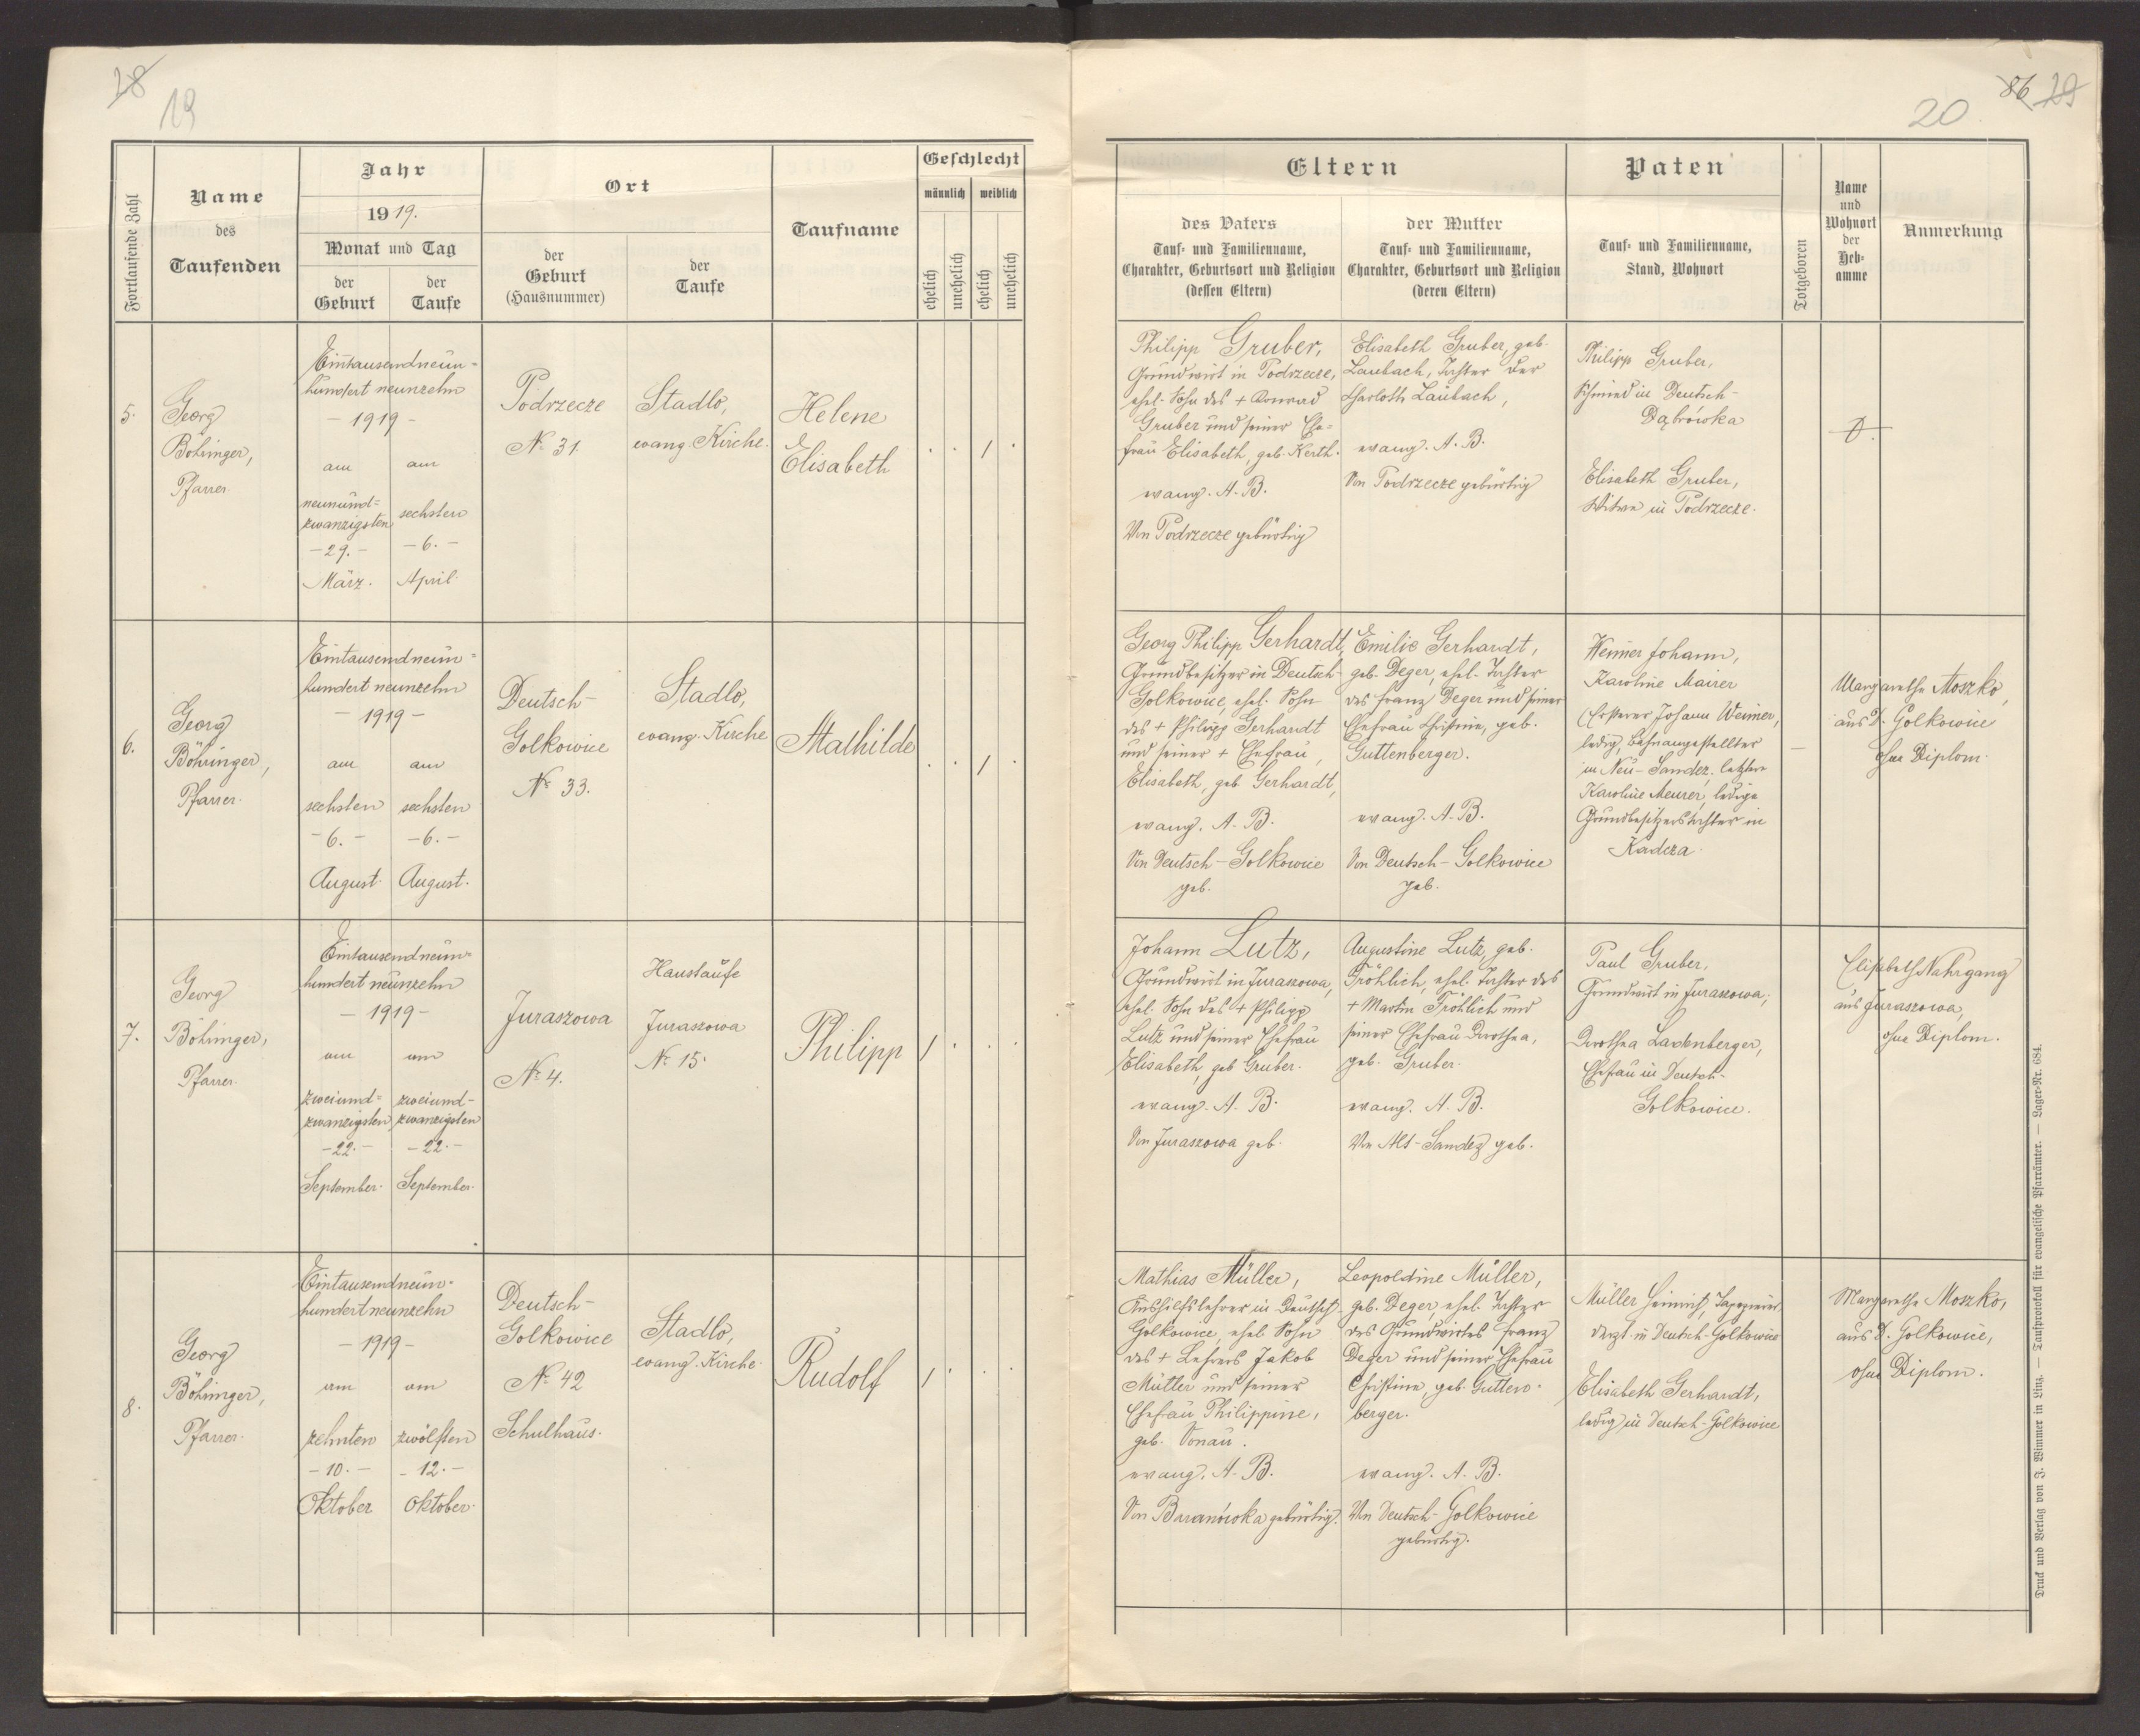 28
19
Fortlaufende Zahl
Name
des
Taufenden
Jahr
1919.
Monat und Tag
der
Geburt
der
Taufe
Ort
der
Geburt
(Hausnummer)
der
Taufe
Taufname
Geschlecht
männlich
weiblich
ehelich
unehelich
ehelich
unehelich
5.
Georg
Böhringer,
Pfarrer.
Eintausendneun-
hundert neunzehn
- 1919 -
am
neunund-
zwanzigsten
- 29. -
März.
am
sechsten
- 6. -
April.
Podrzecze
No 31.
Stadlo,
evang. Kirche.
Helene
Elisabeth
. . 1 .
6.
Georg
Böhringer,
Pfarrer.
Eintausendneun=
hundert neunzehn
- 1919 -
am
sechsten
- 6. -
August.
am
sechsten
- 6. -
August.
Deutsch-
Golkowice
No 33.
Stadlo,
evang. Kirche
Mathilde
. . 1 .
7.
Georg
Böhringer,
Pfarrer.
Eintausendneun=
hundert neunzehn
- 1919 -
am
zweiund=
zwanzigsten
- 22. -
September.
am
zweiund-
zwanzigsten
- 22. -
September.
Juraszowa
No 4.
Haustaufe
Juraszowa
No 15.
Philipp
1 . . .
8.
Georg
Böhringer,
Pfarrer.
Eintausendneun-
hundert neunzehn
- 1919 -
am
zehnten
- 10. -
Oktober
am
zwölften
- 12. -
Oktober.
Deutsch-
Golkowice
No 42
Schulhaus.
Stadlo,
evang. Kirche.
Rudolf
1 . . .
86 29
20
Eltern
des Vaters
Tauf- und Familienname,
Charakter, Geburtsort und Religion
(dessen Eltern)
der Mutter
Tauf- und Familienname,
Charakter, Geburtsort und Religion
(deren Eltern)
Paten
Tauf- und Familienname,
Stand, Wohnort
Totgeboren
Name
und
Wohnort
der
Heb-
amme
Anmerkung
Philipp Gruber,
Grundwirt in Podrzecze,
ehel. Sohn des + Konrad
Gruber und seiner Ehe=
frau Elisabeth, geb. Kerth.
evang. A. B.
Von Podrzecze gebürtig
Elisabeth Gruber, geb.
Laubach, Tochter der
Charloth Laubach,
evang. A. B.
Von Podrzecze gebürtig
Philipp Gruber,
Schmied in Deutsch-
Dąbrówka
Elisabeth Gruber,
Witwe in Podrzecze.
Georg Philipp Gerhardt,
Grundbesitzer in Deutsch-
Golkowice, ehel. Sohn
des + Philipp Gerhardt
und seiner + Ehefrau,
Elisabeth, geb. Gerhardt,
evang. A. B.
Von Deutsch-Golkowice
geb.
Emilie Gerhardt,
geb. Deger, ehel. Tochter
des Franz Deger und seiner
Ehefrau Christine, geb.
Guttenberger.
evang. A. B.
Von Deutsch-Golkowice
geb.
Weimer Johann,
Karoline Maurer
(Ersterer Johann Weimer,
ledig, Bahnangestellter
in Neu-Sandez, letztere
Karoline Meurer, ledige
Grundbesitzerstochter in
Kadcza.
—
Margarethe Moszko,
aus D. Golkowice
ohne Diplom.
Johann Lutz,
Grundwirt in Juraszowa,
ehel. Sohn des + Philipp
Lutz und seiner Ehefrau
Elisabeth, geb. Gruber.
evang. A. B.
Von Juraszowa geb.
Augustine Lutz, geb.
Fröhlich, ehel. Tochter des
+ Martin Fröhlich und
seiner Ehefrau Dorothea,
geb. Gruber.
evang. A. B.
Von Alt-Sandez geb.
Paul Gruber,
Grundwirt in Juraszowa;
Dorothea Ladenberger,
Ehefrau in Deutsch-
Golkowice.
Elisabeth Nahrgang
aus Juraszowa,
ohne Diplom.
Mathias Müller,
Aushilfslehrer in Deutsch-
Golkowice, ehel. Sohn
des + Lehrers Jakob
Müller und seiner
Ehefrau Philippine,
geb. Vonau.
evang. A. B.
Von Baranówka gebürtig.
Leopoldine Müller,
geb. Deger, ehel. Tochter
des Grundwirtes Franz
Deger und seiner Ehefrau
Christine, geb. Gutten-
berger.
evang. A. B.
Von Deutsch-Golkowice
gebürtig.
Müller Heinrich, Tapezierer,
derzt. in Deutsch-Golkowice
Elisabeth Gerhardt,
ledig in Deutsch-Golkowice
Margarethe Moszko,
aus D. Golkowice,
ohne Diplom.
Druck und Verlag von J. Wimmer in Linz. — Taufprotokoll für evangelische Pfarrämter. — Lager-Nr. 684.